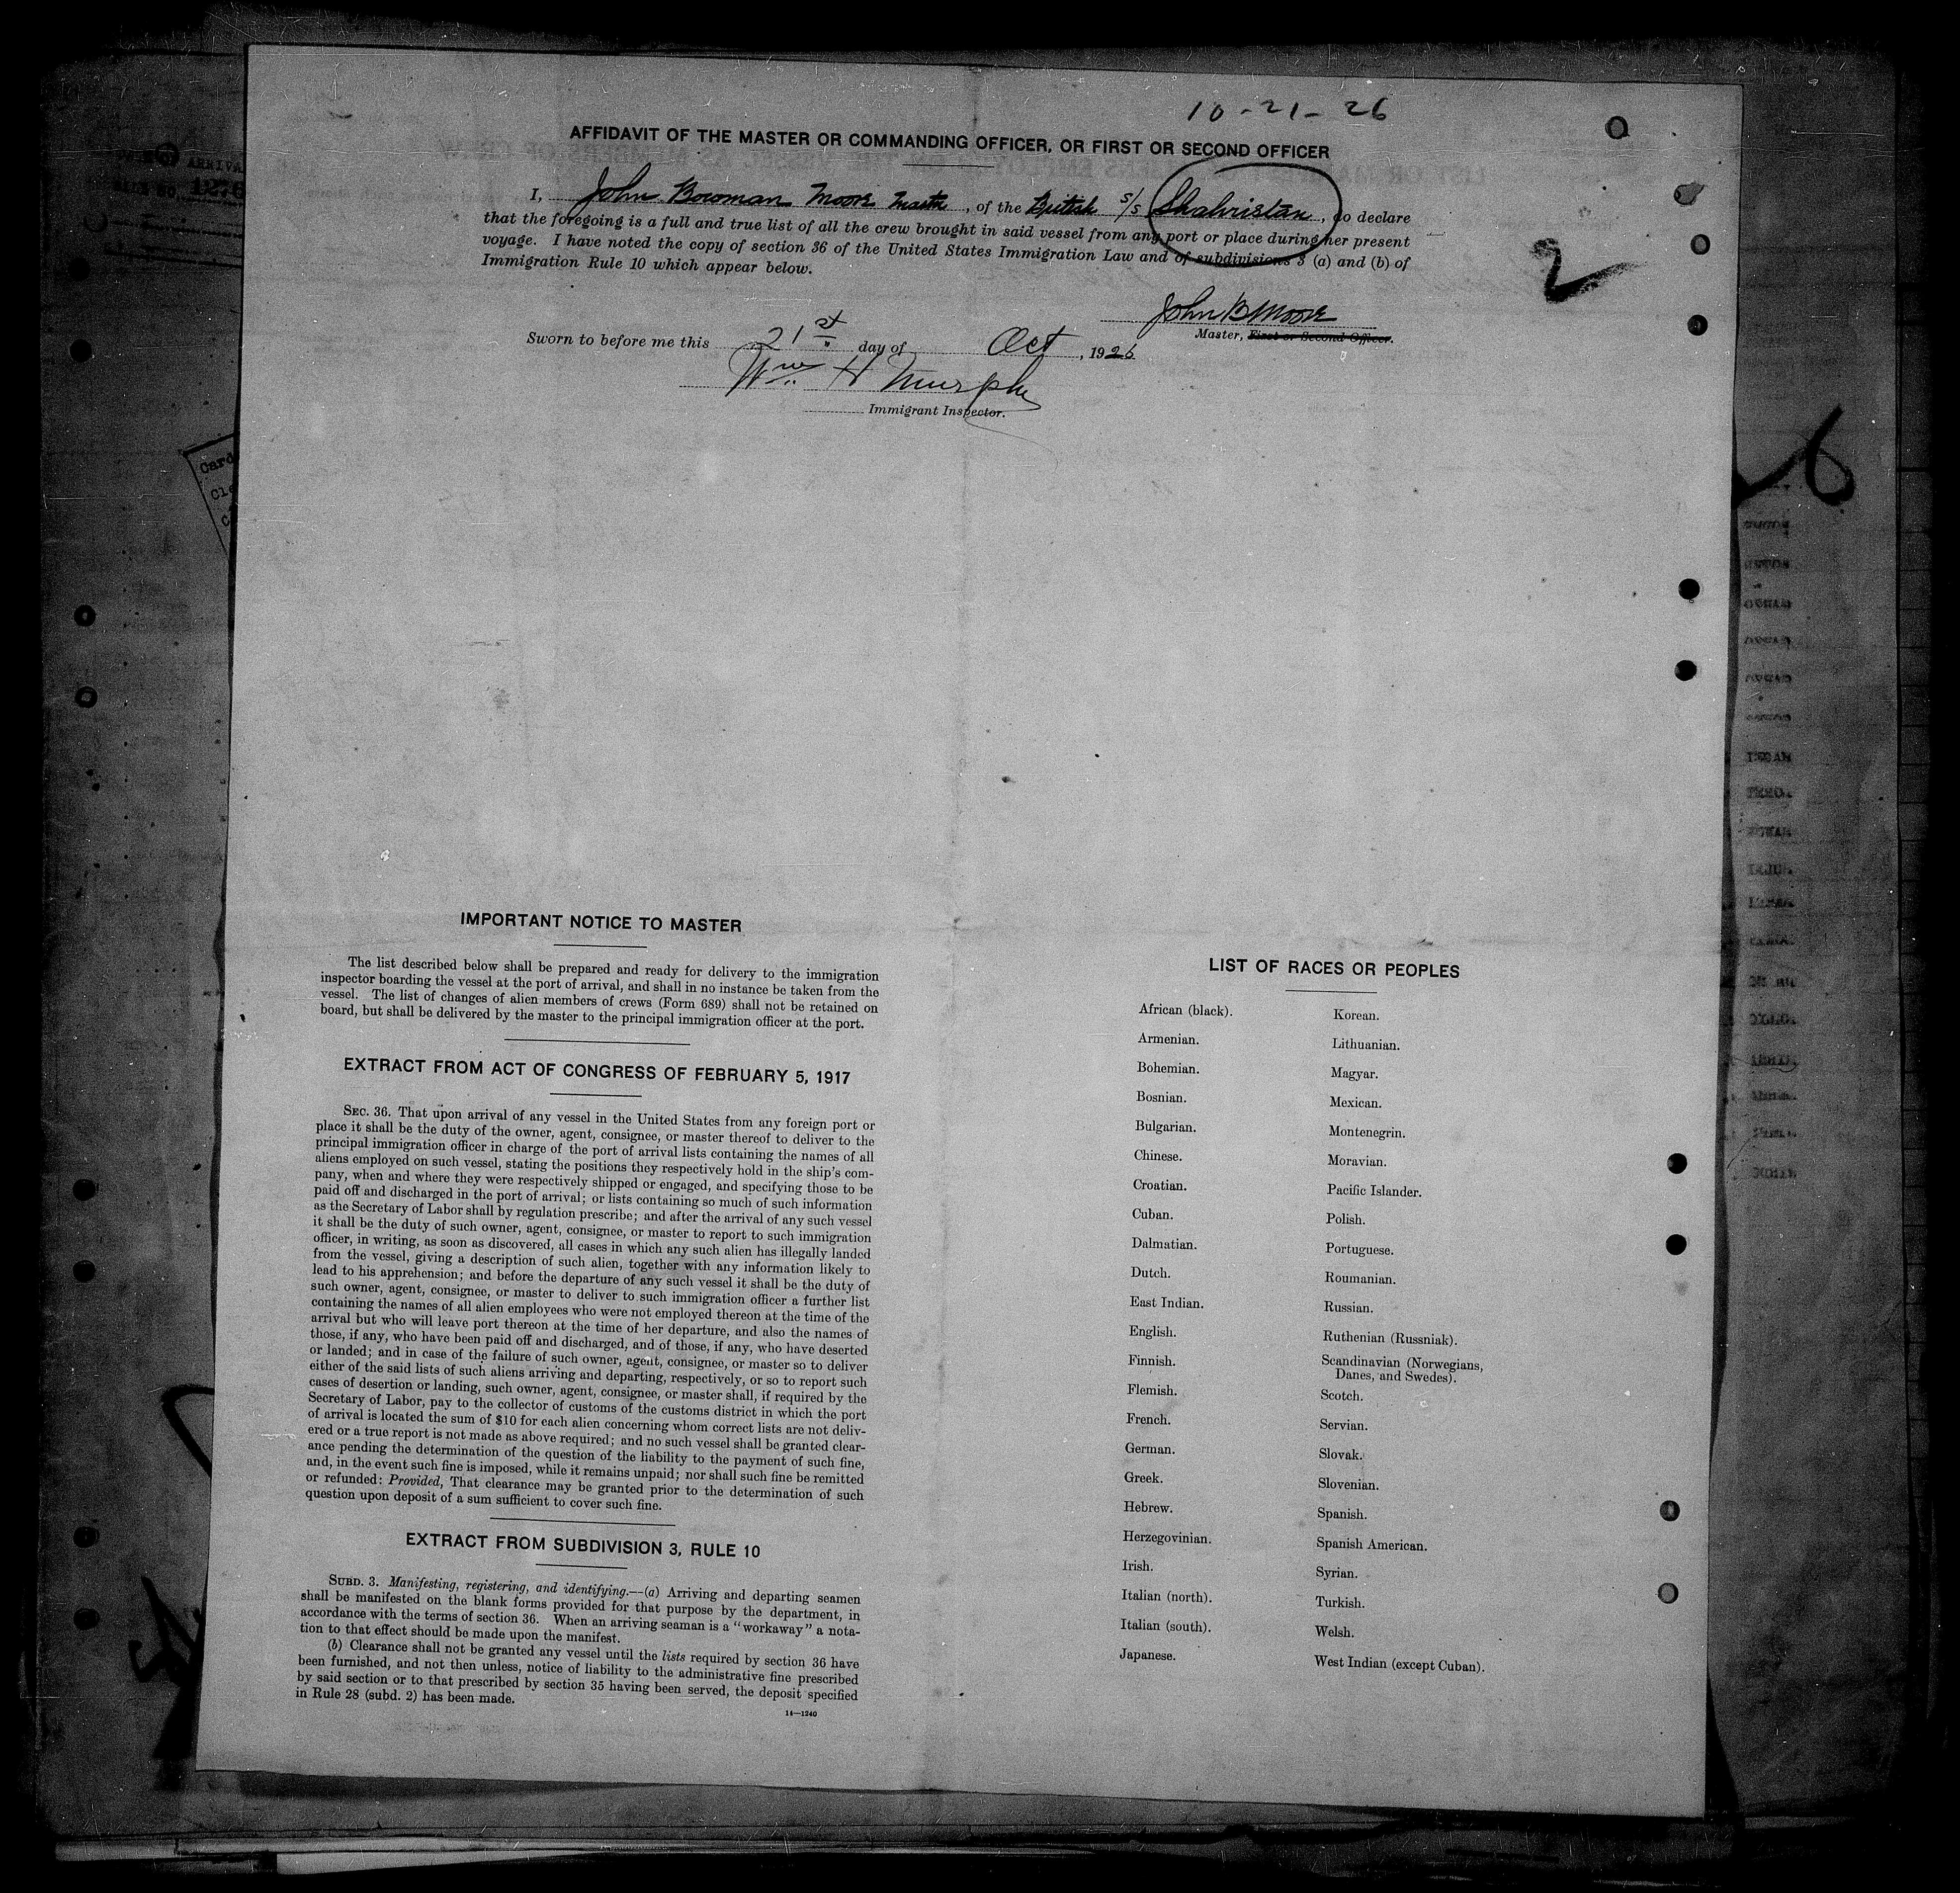 10-21-26
AFFIDAVIT OF THE MASTER OR COMMANDING OFFICER, OR FIRST OR SECOND OFFICER
I, John Bowman Moore Master, of the British S/S Shahristan, do declare
that the foregoing is a full and true list of all the crew brought in said vessel from any port or place during her present
voyage. I have noted the copy of section 36 of the United States Immigration Law and of subdivisions 3 (a) and (b) of
Immigration Rule 10 which appear below.
2
John B Moore
Master, First or Second Officer.
Sworn to before me this 21st day of Oct, 1926
Wm H Murphy
Immigrant Inspector.
IMPORTANT NOTICE TO MASTER
The list described below shall be prepared and ready for delivery to the immigration
inspector boarding the vessel at the port of arrival, and shall in no instance be taken from the
vessel. The list of changes of alien members of crews (Form 689) shall not be retained on
board, but shall be delivered by the master to the principal immigration officer at the port.
EXTRACT FROM ACT OF CONGRESS OF FEBRUARY 5, 1917
SEC. 36. That upon arrival of any vessel in the United States from any foreign port or
place it shall be the duty of the owner, agent, consignee, or master thereof to deliver to the
principal immigration officer in charge of the port of arrival lists containing the names of all
aliens employed on such vessel, stating the positions they respectively hold in the ship's com-
pany, when and where they were respectively shipped or engaged, and specifying those to be
paid off and discharged in the port of arrival; or lists containing so much of such information
as the Secretary of Labor shall by regulation prescribe; and after the arrival of any such vessel
it shall be the duty of such owner, agent, consignee, or master to report to such immigration
officer, in writing, as soon as discovered, all cases in which any such alien has illegally landed
from the vessel, giving a description of such alien, together with any information likely to
lead to his apprehension; and before the departure of any such vessel it shall be the duty of
such owner, agent, consignee, or master to deliver to such immigration officer a further list
containing the names of all alien employees who were not employed thereon at the time of the
arrival but who will leave port thereon at the time of her departure, and also the names of
those, if any, who have been paid off and discharged, and of those, if any, who have deserted
or landed; and in case of the failure of such owner, agent, consignee, or master so to deliver
either of the said lists of such aliens arriving and departing, respectively, or so to report such
cases of desertion or landing, such owner, agent, consignee, or master shall, if required by the
Secretary of Labor, pay to the collector of customs of the customs district in which the port
of arrival is located the sum of $10 for each alien concerning whom correct lists are not deliv-
ered or a true report is not made as above required; and no such vessel shall be granted clear-
ance pending the determination of the question of the liability to the payment of such fine,
and, in the event such fine is imposed, while it remains unpaid; nor shall such fine be remitted
or refunded: Provided, That clearance may be granted prior to the determination of such
question upon deposit of a sum sufficient to cover such fine.
EXTRACT FROM SUBDIVISION 3, RULE 10
SUBD. 3. Manifesting, registering, and identifying.—(a) Arriving and departing seamen
shall be manifested on the blank forms provided for that purpose by the department, in
accordance with the terms of section 36. When an arriving seaman is a "workaway" a nota-
tion to that effect should be made upon the manifest.
(b) Clearance shall not be granted any vessel until the lists required by section 36 have
been furnished, and not then unless, notice of liability to the administrative fine prescribed
by said section or to that prescribed by section 35 having been served, the deposit specified
in Rule 28 (subd. 2) has been made.
14—1240
LIST OF RACES OR PEOPLES
African (black).
Armenian.
Bohemian.
Bosnian.
Bulgarian.
Chinese.
Croatian.
Cuban.
Dalmatian.
Dutch.
East Indian.
English.
Finnish.
Flemish.
French.
German.
Greek.
Hebrew.
Herzegovinian.
Irish.
Italian (north).
Italian (south).
Japanese.
Korean.
Lithuanian.
Magyar.
Mexican.
Montenegrin.
Moravian.
Pacific Islander.
Polish.
Portuguese.
Roumanian.
Russian.
Ruthenian (Russniak).
Scandinavian (Norwegians,
Danes, and Swedes).
Scotch.
Servian.
Slovak.
Slovenian.
Spanish.
Spanish American.
Syrian.
Turkish.
Welsh.
West Indian (except Cuban).